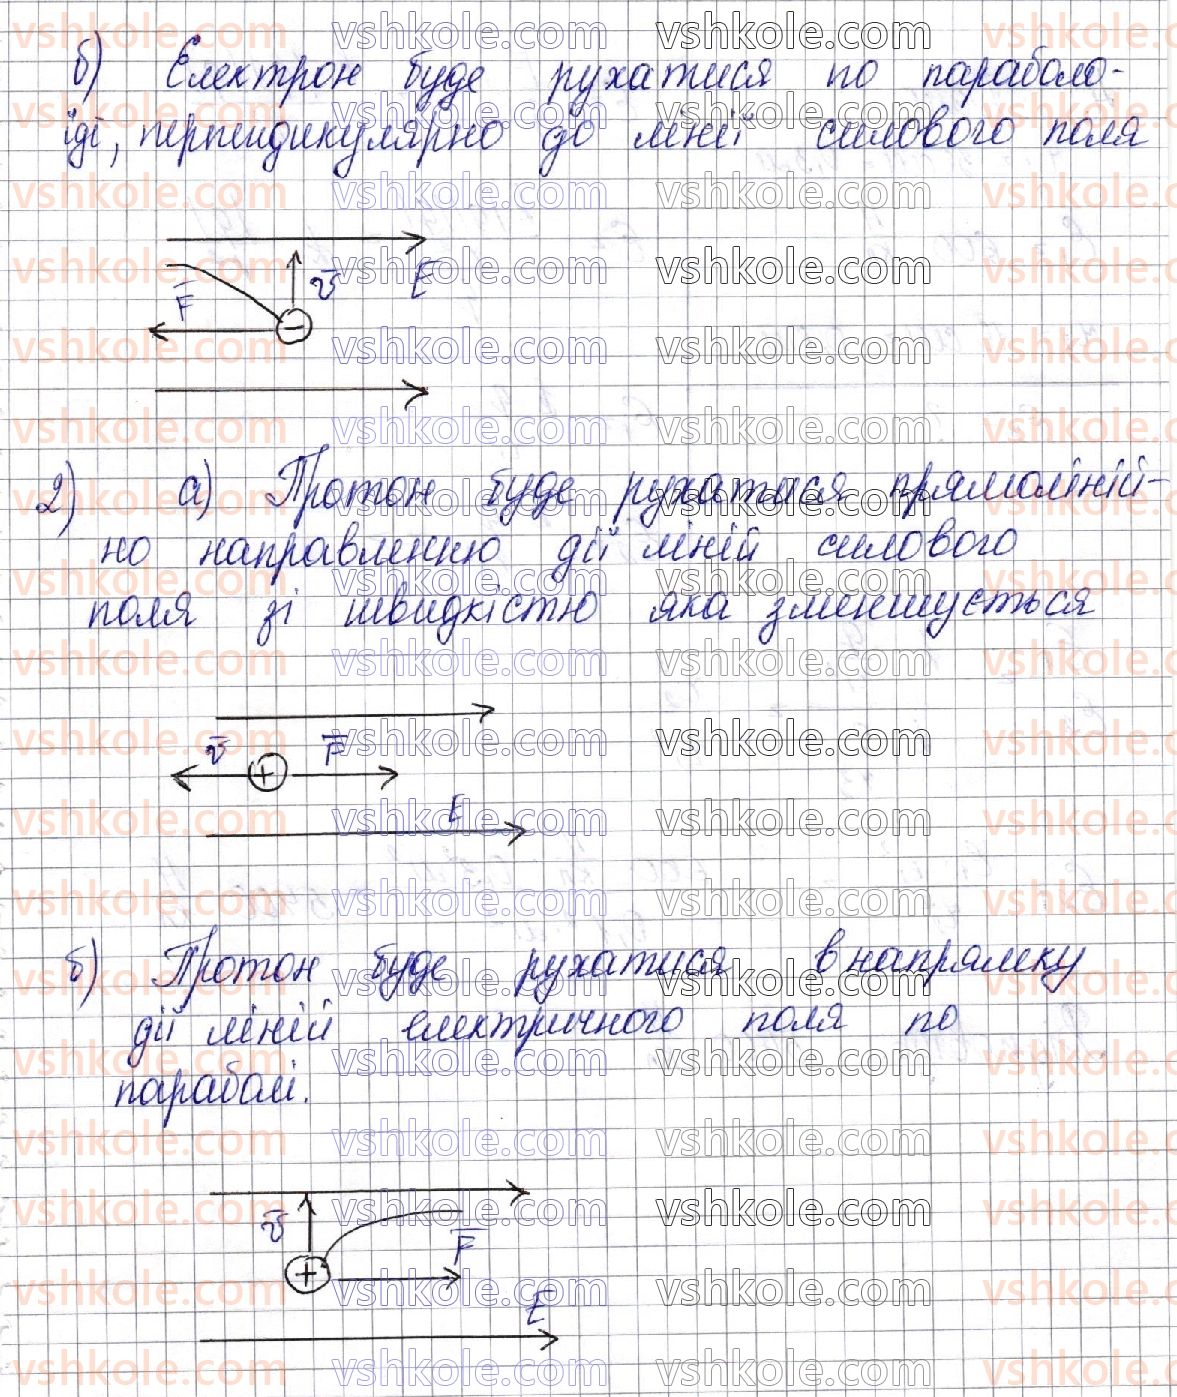 б) Електрон буде рухатися по параболо-
їді, перпендикулярно до ліній силового поля
E
v
F
−
2) а) Протон буде рухатися прямоліній-
но направленню дії ліній силового
поля зі швидкістю яка зменшується
v + F
E
б) Протон буде рухатися в напрямку
дії ліній електричного поля по
параболі.
v
F
+
E
vshkole.com